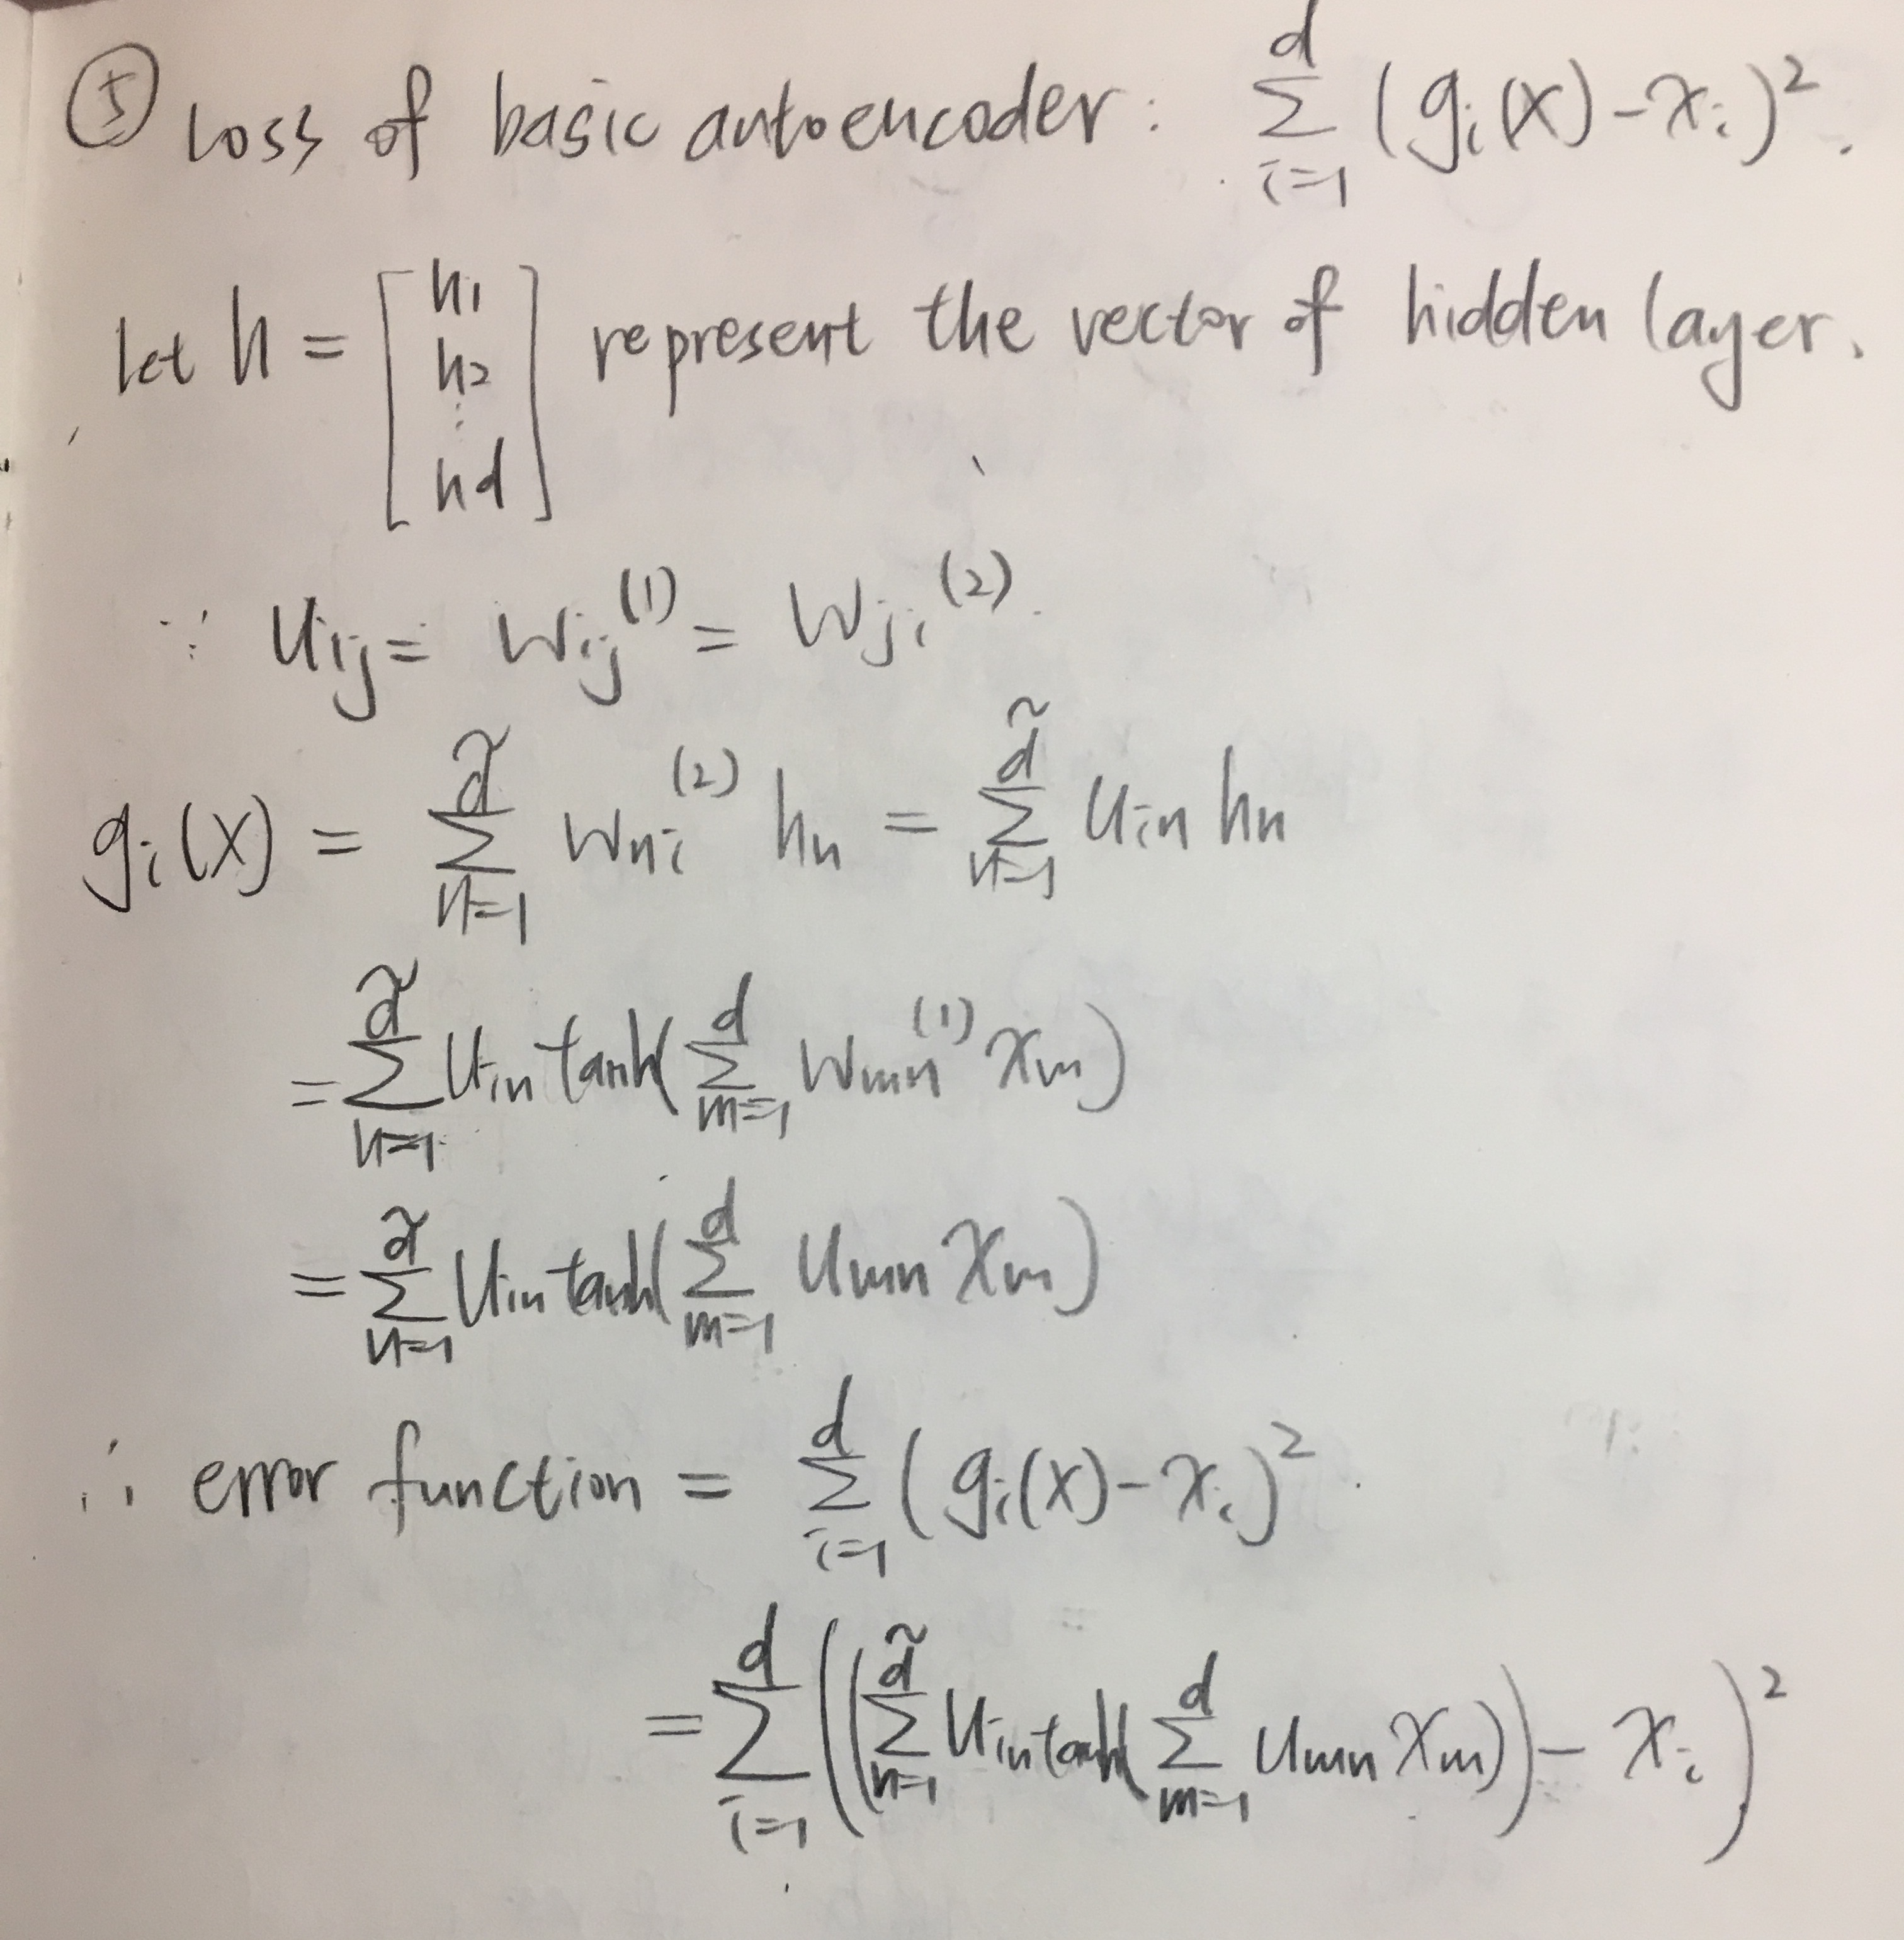 ⑤ Loss of basic autoencoder: $\sum_{i=1}^{d} (g_i(x) - x_i)^2$.
let $h = \begin{bmatrix} h_1 \\ h_2 \\ \vdots \\ h_d \end{bmatrix}$ represent the vector of hidden layer.
$\because u_{ij} = w_{ij}^{(1)} = w_{ji}^{(2)}$.
$g_i(x) = \sum_{n=1}^{\tilde{d}} w_{ni}^{(2)} h_n = \sum_{n=1}^{\tilde{d}} u_{in} h_n$
$= \sum_{n=1}^{\tilde{d}} u_{in} \tanh(\sum_{m=1}^{d} w_{mn}^{(1)} x_m)$
$= \sum_{n=1}^{\tilde{d}} u_{in} \tanh(\sum_{m=1}^{d} u_{mn} x_m)$
$\therefore$ error function $= \sum_{i=1}^{d} (g_i(x) - x_i)^2$.
$= \sum_{i=1}^{d} \left( \left( \sum_{n=1}^{\tilde{d}} u_{in} \tanh(\sum_{m=1}^{d} u_{mn} x_m) \right) - x_i \right)^2$